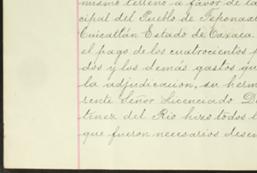 mismo terreno a favor de la
cipal del Pueblo de Teponax
Cuicatlán Estado de Oaxaca.
el pago de los cuatrocientos p
dos y los demás gastos qu
la adjudicación, su herm
rente Señor Licenciado D
tenez del Rio hizo todos l
que fueron necesarios desem